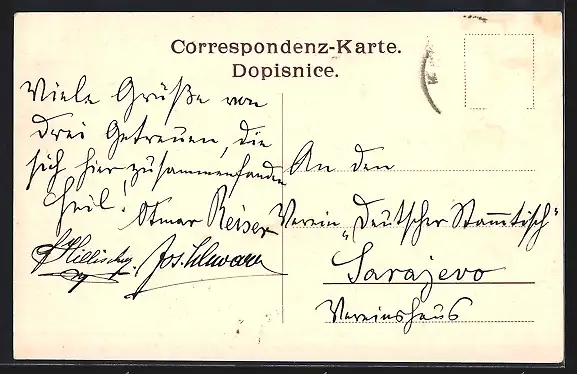 Correspondenz-Karte.
Dopisnice.
Viele Grüße von
drei Getreuen, die
sich hier zusammenfanden
Heil!
Otmar Reiser
Jos. Schwarz
An den
Verein „Deutscher Stam̅tisch"
Sarajevo
Vereinshaus